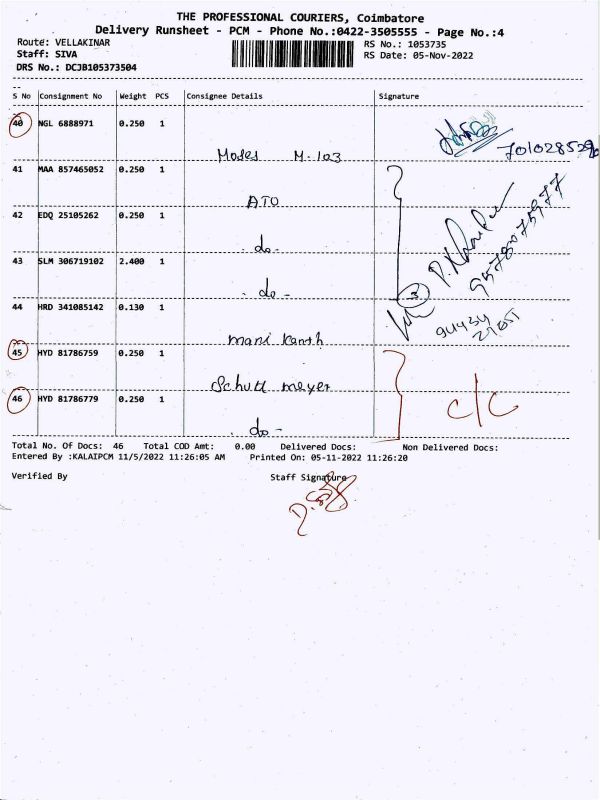 THE PROFESSIONAL COURIERS, Coimbatore
Delivery Runsheet - PCM - Phone No.:0422-3505555 - Page No.:4
Route: VELLAKINAR
RS No.: 1053735
Staff: SIVA
RS Date: 05-Nov-2022
DRS No.: DCJB105373504
S No Consignment No Weight PCS Consignee Details Signature
40 NGL 6888971 0.250 1
Moses M-103
41 MAA 857465052 0.250 1
ATO
42 EDQ 25105262 0.250 1
- do -
43 SLM 306719102 2.400 1
- do -
3
44 HRD 341085142 0.130 1
mani kanth
45 HYD 81786759 0.250 1
Schutt meyer
46 HYD 81786779 0.250 1
- do -
c/c
Total No. Of Docs: 46 Total COD Amt: 0.00 Delivered Docs: Non Delivered Docs:
Entered By :KALAIPCM 11/5/2022 11:26:05 AM Printed On: 05-11-2022 11:26:20
Verified By Staff Signature